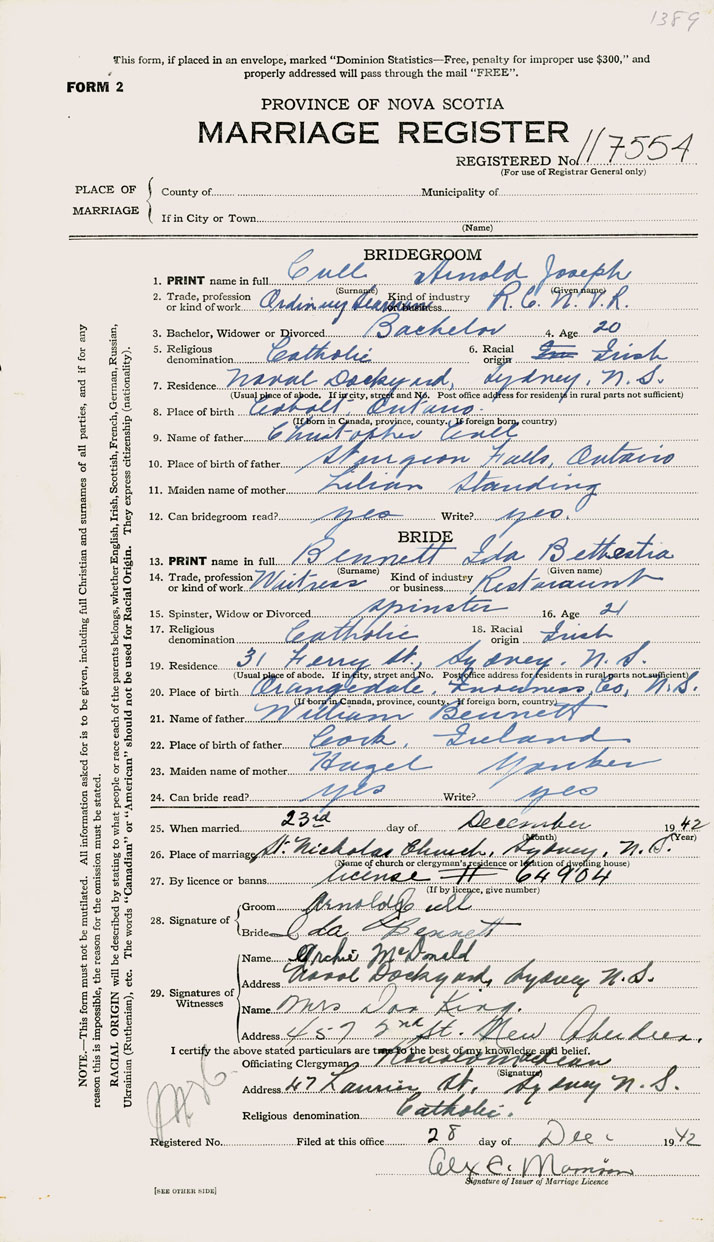 1389
This form, if placed in an envelope, marked "Dominion Statistics—Free, penalty for improper use $300," and
properly addressed will pass through the mail "FREE".
FORM 2
PROVINCE OF NOVA SCOTIA
MARRIAGE REGISTER
REGISTERED No. 117554
(For use of Registrar General only)
PLACE OF MARRIAGE
County of Municipality of
If in City or Town
(Name)
BRIDEGROOM
1. PRINT name in full Cull Arnold Joseph
(Surname) (Given name)
2. Trade, profession or kind of work Ordinary Seaman Kind of industry or business R.C.N.V.R.
3. Bachelor, Widower or Divorced Bachelor 4. Age 20
5. Religious denomination Catholic 6. Racial origin Irish
7. Residence Naval Dockyard, Sydney, N.S.
(Usual place of abode. If in city, street and No. Post office address for residents in rural parts not sufficient)
8. Place of birth Cobolt, Ontario.
(If born in Canada, province, county. If foreign born, country)
9. Name of father Christopher Cull
10. Place of birth of father Sturgeon Falls, Ontario
11. Maiden name of mother Lilian Standing
12. Can bridegroom read? yes Write? yes.
BRIDE
13. PRINT name in full Bennett Ida
(Surname) (Given name)
14. Trade, profession or kind of work Waitress Kind of industry or business Restaraunt
15. Spinster, Widow or Divorced spinster 16. Age 21
17. Religious denomination Catholic 18. Racial origin Irish
19. Residence 31 Ferry St., Sydney. N.S.
(Usual place of abode. If in city, street and No. Post office address for residents in rural parts not sufficient)
20. Place of birth Orangedale, Inverness, Co, N.S.
(If born in Canada, province, county. If foreign born, country)
21. Name of father William Bennett
22. Place of birth of father Cork, Ireland
23. Maiden name of mother Yonker
24. Can bride read? yes Write? yes
25. When married 23rd day of December 1942
(Month) (Year)
26. Place of marriage St. Nicholas Church, Sydney, N.S.
(Name of church or clergyman's residence or location of dwelling house)
27. By licence or banns license # 64904
(If by licence, give number)
28. Signature of
Groom Arnold Cull
Bride Ida Bennett
29. Signatures of Witnesses
Name Archie McDonald
Address Naval Dockyard, Sydney N.S.
Name Mrs Dan King.
Address 457 2nd St. New Aberdeen.
I certify the above stated particulars are true to the best of my knowledge and belief.
Officiating Clergyman
(Signature)
Address 47 St, Sydney N.S.
Religious denomination Catholic.
Registered No. Filed at this office 28 day of Dec 1942
Alex C.
Signature of Issuer of Marriage Licence
[SEE OTHER SIDE]
NOTE.—This form must not be mutilated. All information asked for is to be given, including full Christian and surnames of all parties, and if for any
reason this is impossible, the reason for the omission must be stated.
RACIAL ORIGIN will be described by stating to what people or race each of the parents belongs, whether English, Irish, Scottish, French, German, Russian,
Ukrainian (Ruthenian), etc. The words "Canadian" or "American" should not be used for Racial Origin. They express citizenship (nationality).